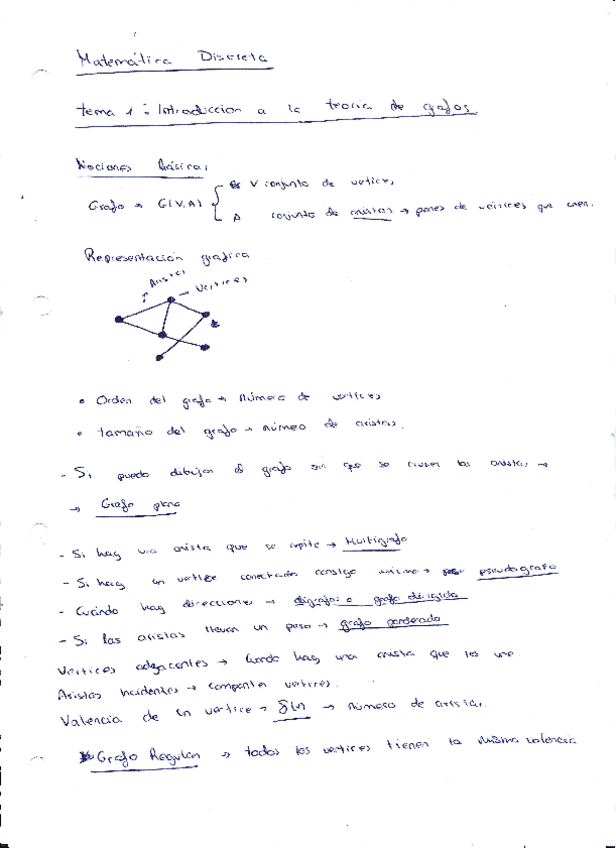 Matemática Discreta
tema 1: Introduccion a la teoria de grafos.
Nociones Básicas:
Grafo → G(V,A) { V conjunto de vertices
A conjunto de aristas → pares de vertices que unen.
Representación grafica
Aristas
→ Vertices
• Orden del grafo → número de vertices
• tamaño del grafo → número de aristas.
- Si puedo dibujar el grafo sin que se crucen las aristas →
→ Grafo plano
- Si hay una arista que se repite → Multigrafo
- Si hay un vertice conectado consigo mismo → pseudografo
- Cuándo hay direcciones → digrafo o grafo dirigido
- Si las aristas llevan un peso → grafo ponderado
Vertices adyacentes → Cuando hay una arista que los une
Aristas incidentes → comparten vertices.
Valencia de un vertice → → número de aristas.
Grafo Regular → todos los vertices tienen la misma valencia